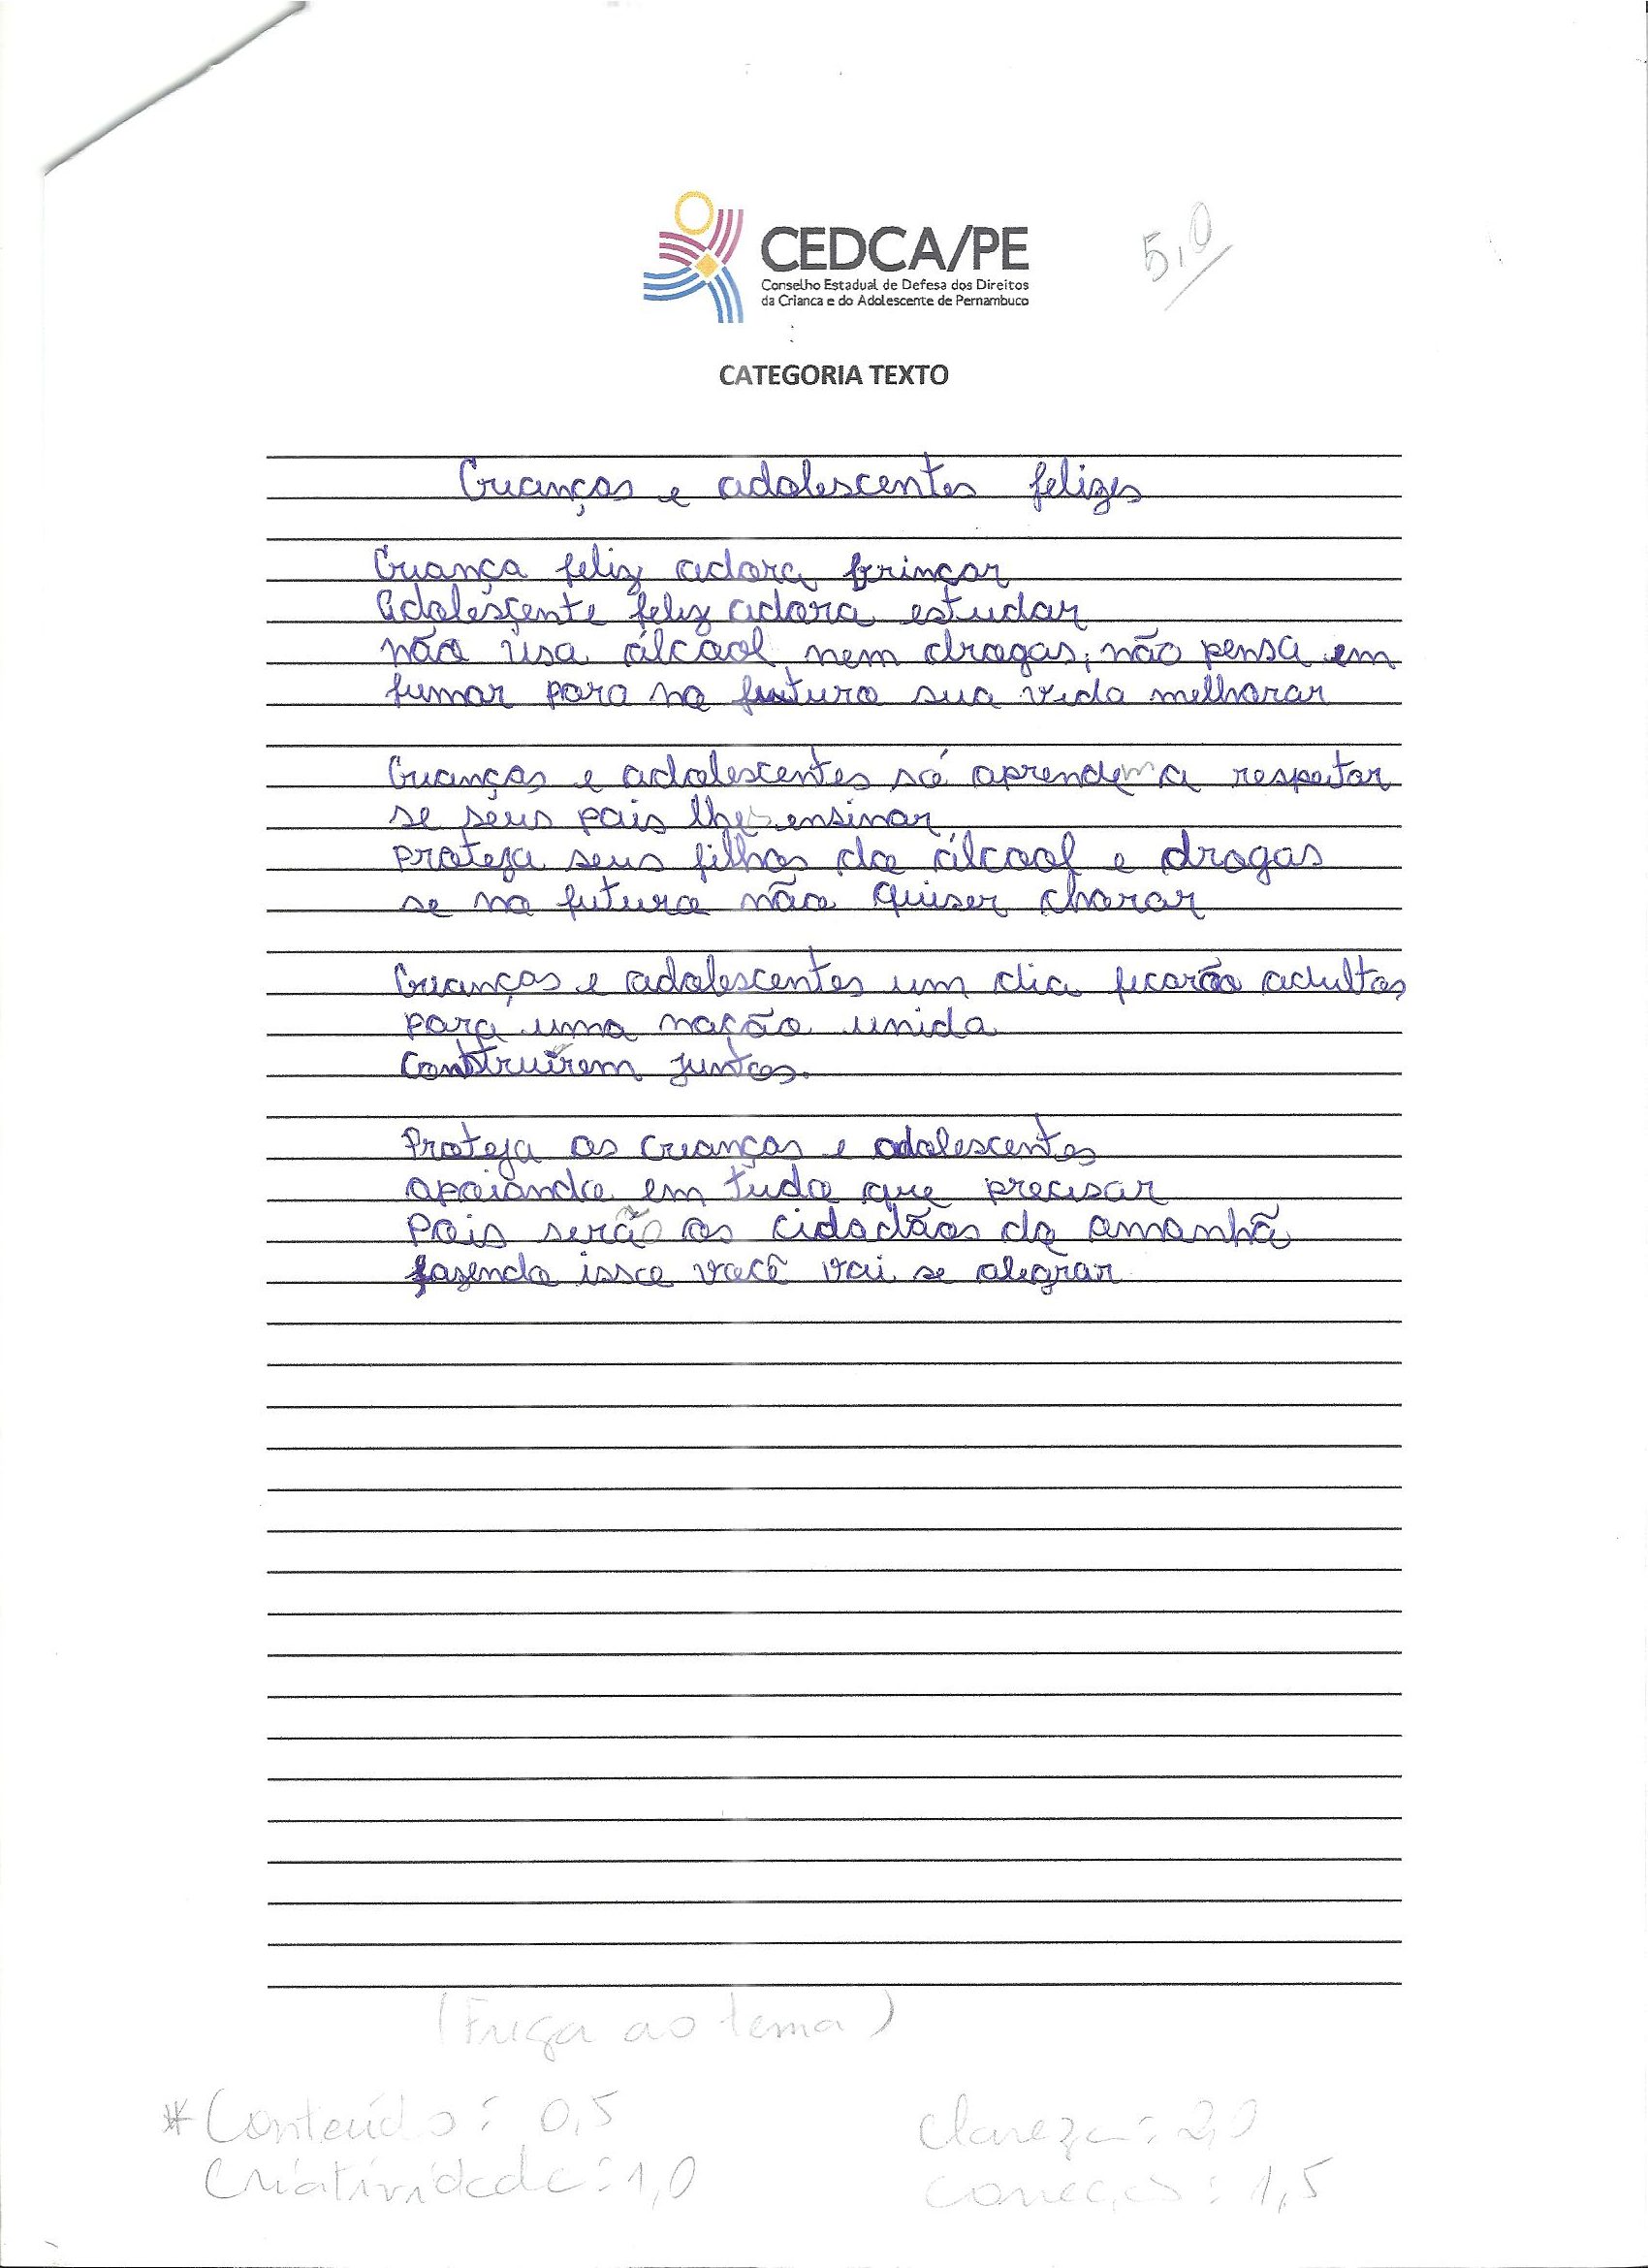 CEDCA/PE
Conselho Estadual de Defesa dos Direitos
da Crianca e do Adolescente de Pernambuco
5,0
CATEGORIA TEXTO
Crianças e adolescentes felizes
Criança feliz adora brincar
Adolesçente feliz adora estudar
não usa álcool, nem drogas, não pensa em
fumar para no futuro sua vida melhorar
Crianças e adolescentes só aprendem a respeitar
se seus pais lhes ensinar
proteja seus filhos do álcool e drogas
se no futuro não quiser chorar
Crianças e adolescentes um dia ficarão adultos
para uma nação unida
Construirem juntos.
Proteja as crianças e adolescentes
apoiando em tudo que precisar
Pois serão os cidadãos do amanhã
fazendo isso você vai se alegrar
(Fuga ao tema)
*Conteúdo: 0,5
Clareza: 2,0
Criatividade: 1,0
Correção: 1,5